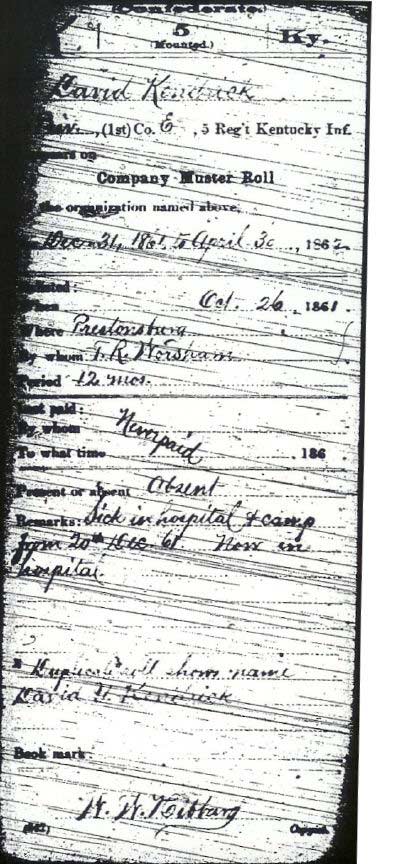 (Confederate.)
5
(Mounted.)
Ky.
David Kendrick
(1st) Co. E, 5 Reg't Kentucky Inf.
on
Company Muster Roll
the organization named above,
Dec 31, 1861, to April 30, 1862.
When Oct. 26, 1861.
Where Prestonsburg
By whom T. R. Worsham
Period 12 mos.
Last paid:
By whom Never paid
To what time , 186 .
Present or absent Absent
Remarks: Sick in hospital & camp
from 20th Dec 61. Now in
hospital.
* Duplicate roll shows name
David H. Kendrick
Book mark:
Copyist.